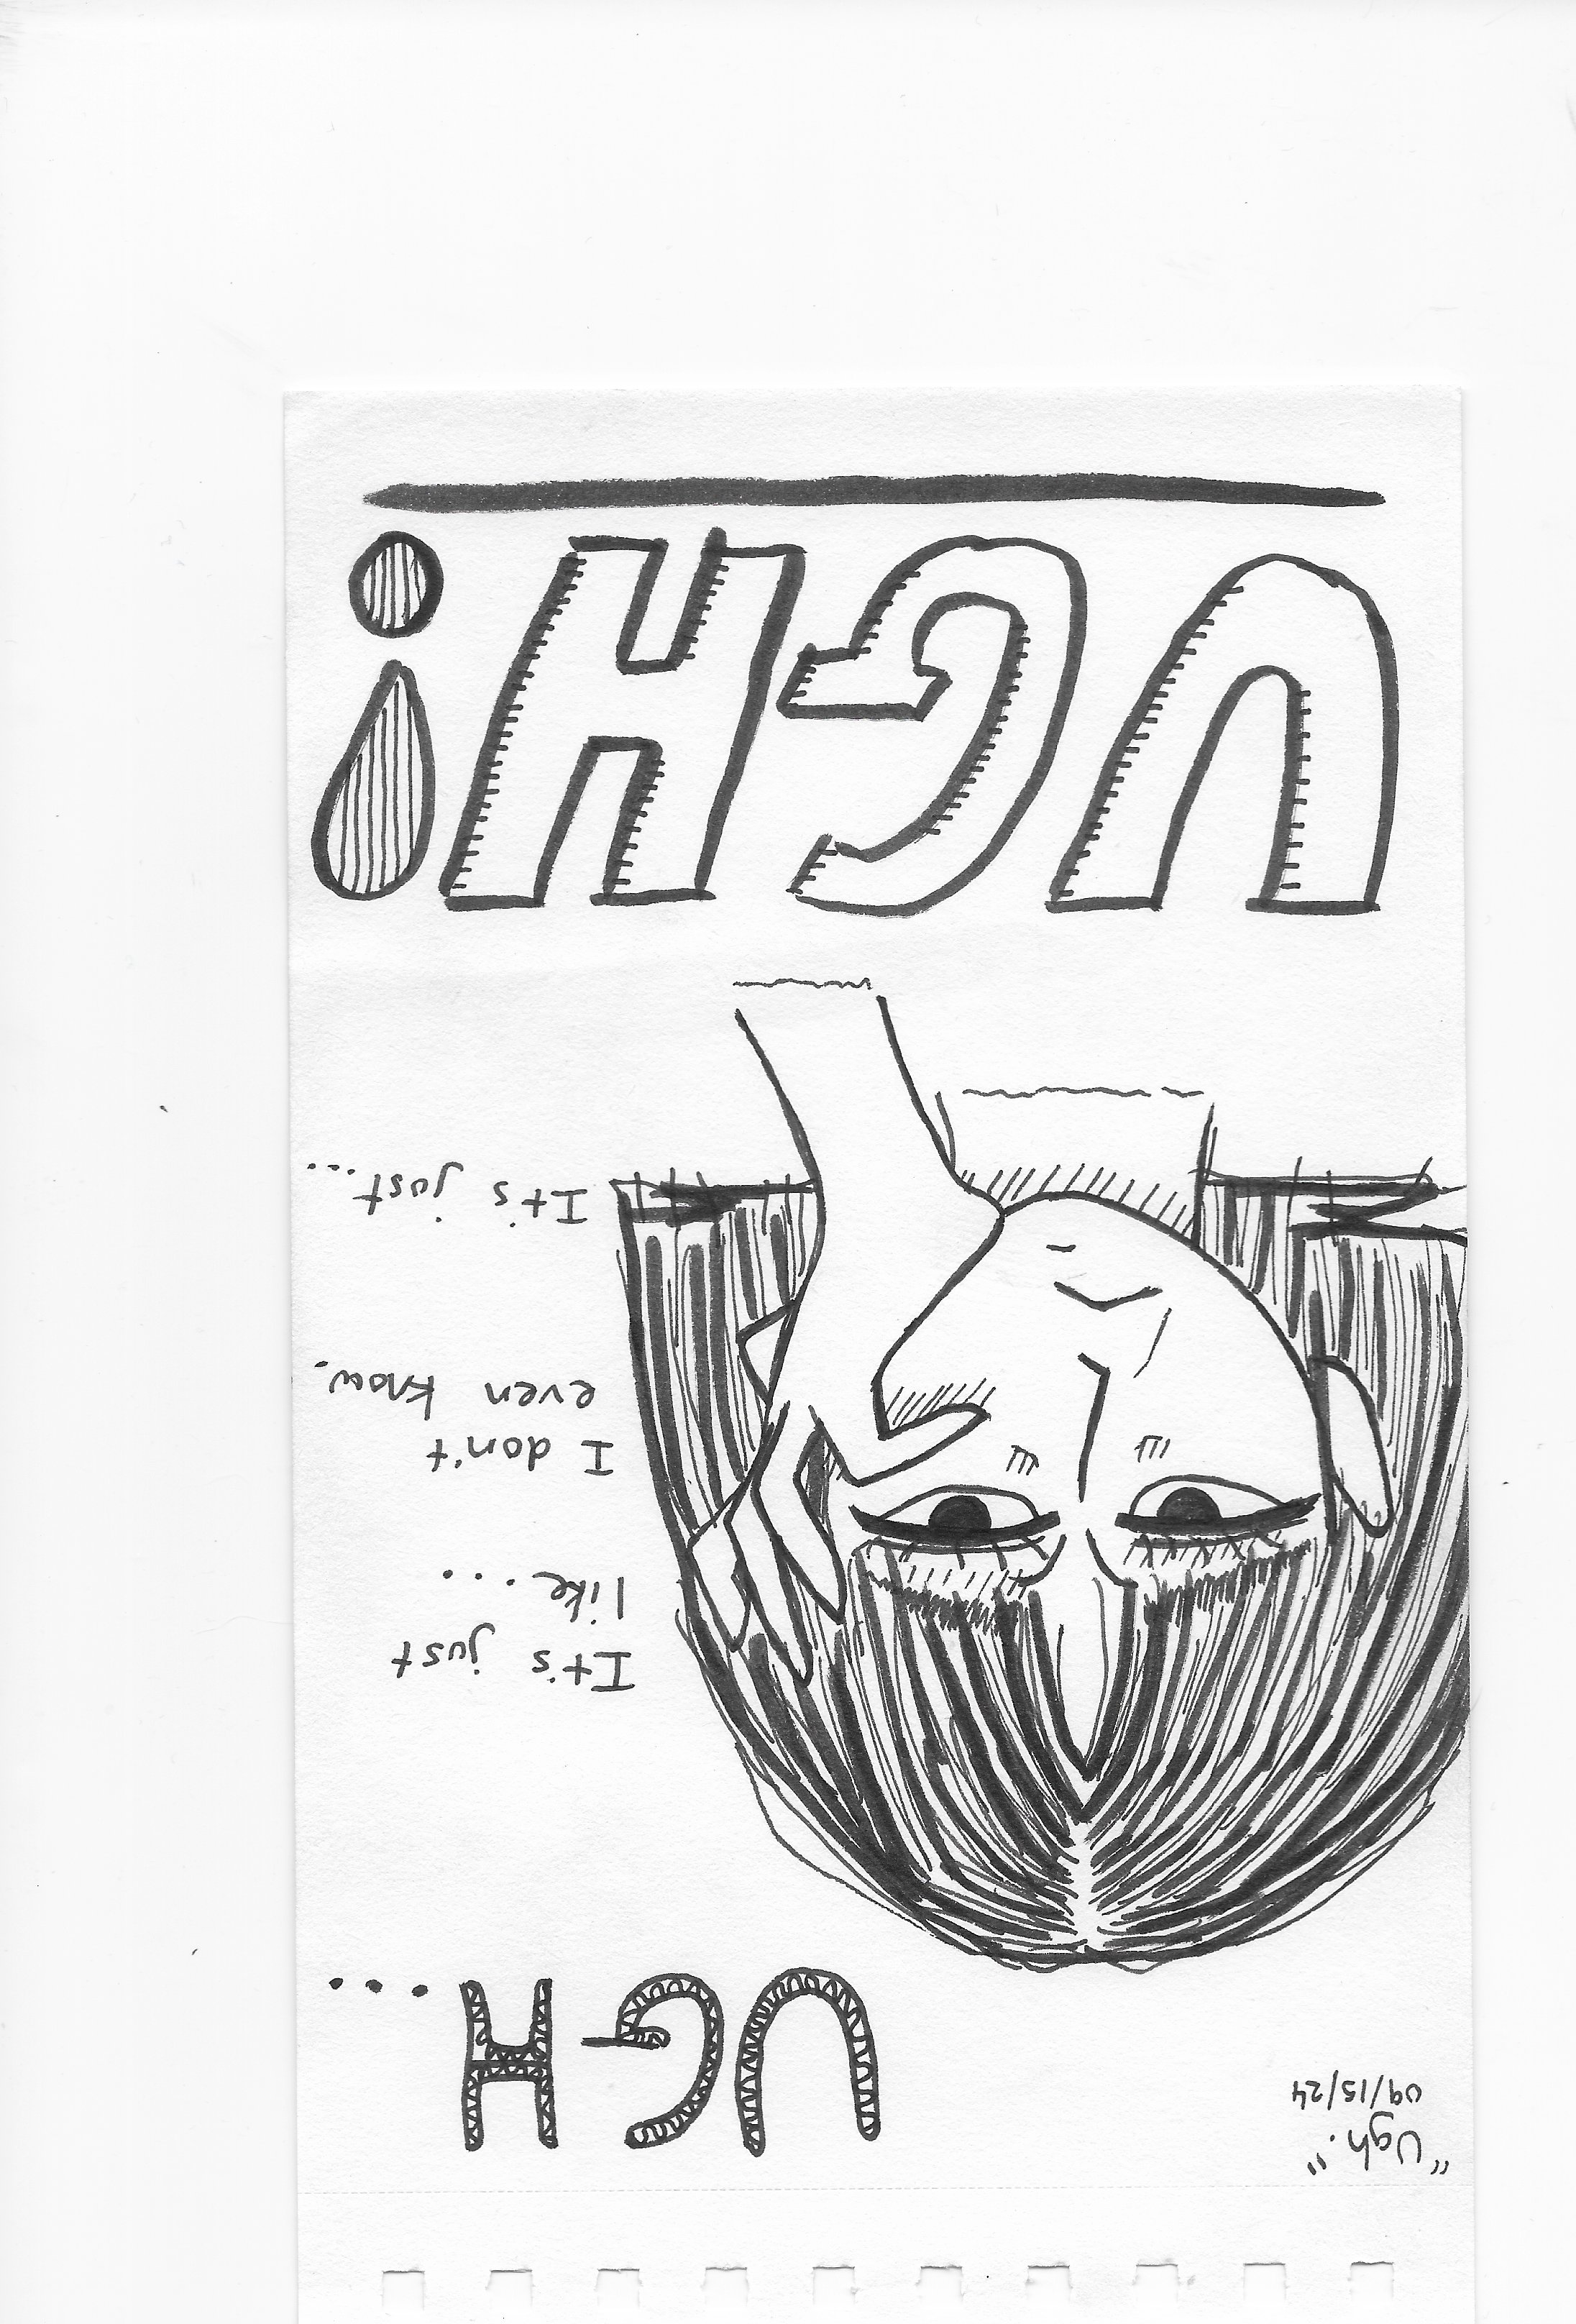 "Ugh."
09/15/24
UGH...
It's just
like...
I don't
even know.
It's just...
UGH!